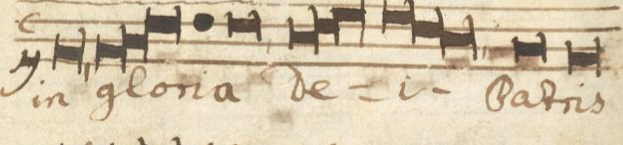 in gloria De - i - Patris